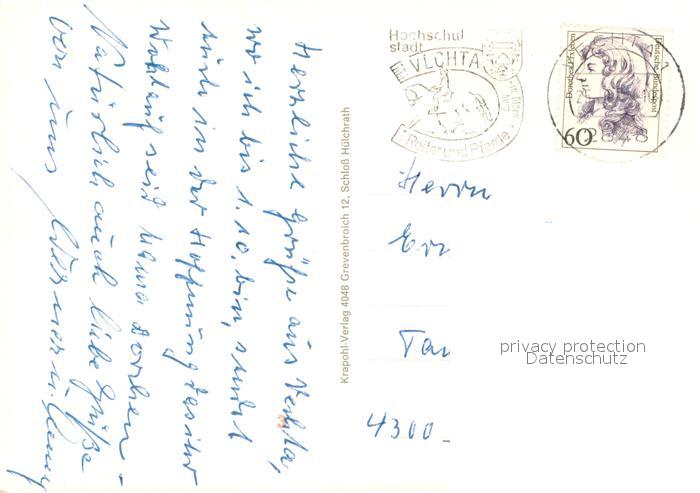 Herzliche Grüße aus Vechta,
wo ich bis 1.10. bin, sendet
euch in der Hoffnung das ihr
Wohlauf seid
Natürlich auch liebe Grüße
von uns Werner u.
Krapohl-Verlag 4048 Grevenbroich 12, Schloß Hülchrath
Hochschul
stadt
VECHTA
Reiter und Pferde
Dorothea Erxleben
Deutsche Bundespost
60
Herrn
4300
privacy protection
Datenschutz